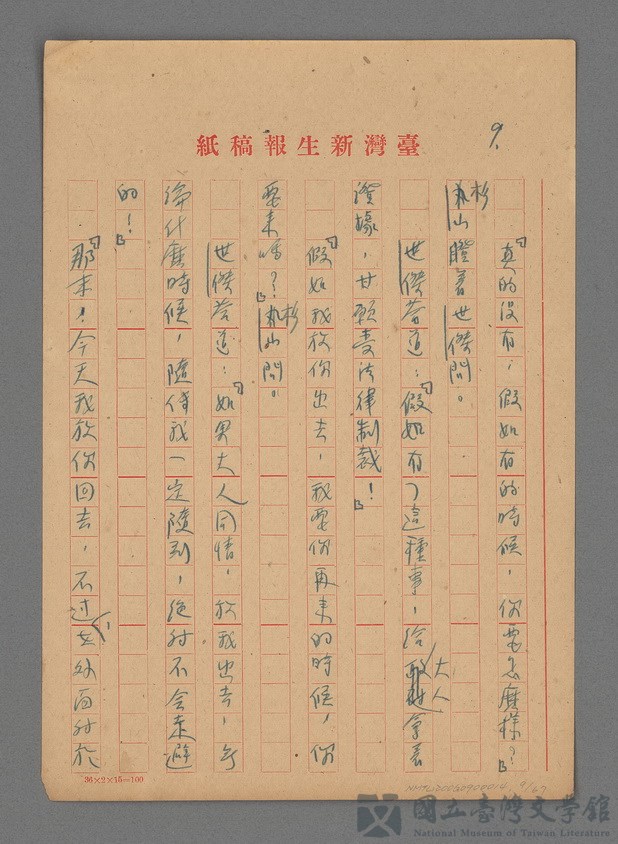 9.
臺灣新生報稿紙
「真的沒有,假如有的時候,你要怎麼樣?」
杉山瞪著世傑問。
世傑答道:「假如有了這種事,給大人拿著
證據,甘願受法律制裁!」
「假如我放你出去,我要你再來的時候,你
要來嗎?」杉山問。
世傑答道:「如果大人同情,放我出去,無
論什麼時候,隨傳我一定隨到,絕對不會走避
的!」
「那末!今天我放你回去,不過,在外面對於
36×2×15=100
NMTL20060900014 9/67
國立臺灣文學館
National Museum of Taiwan Literature